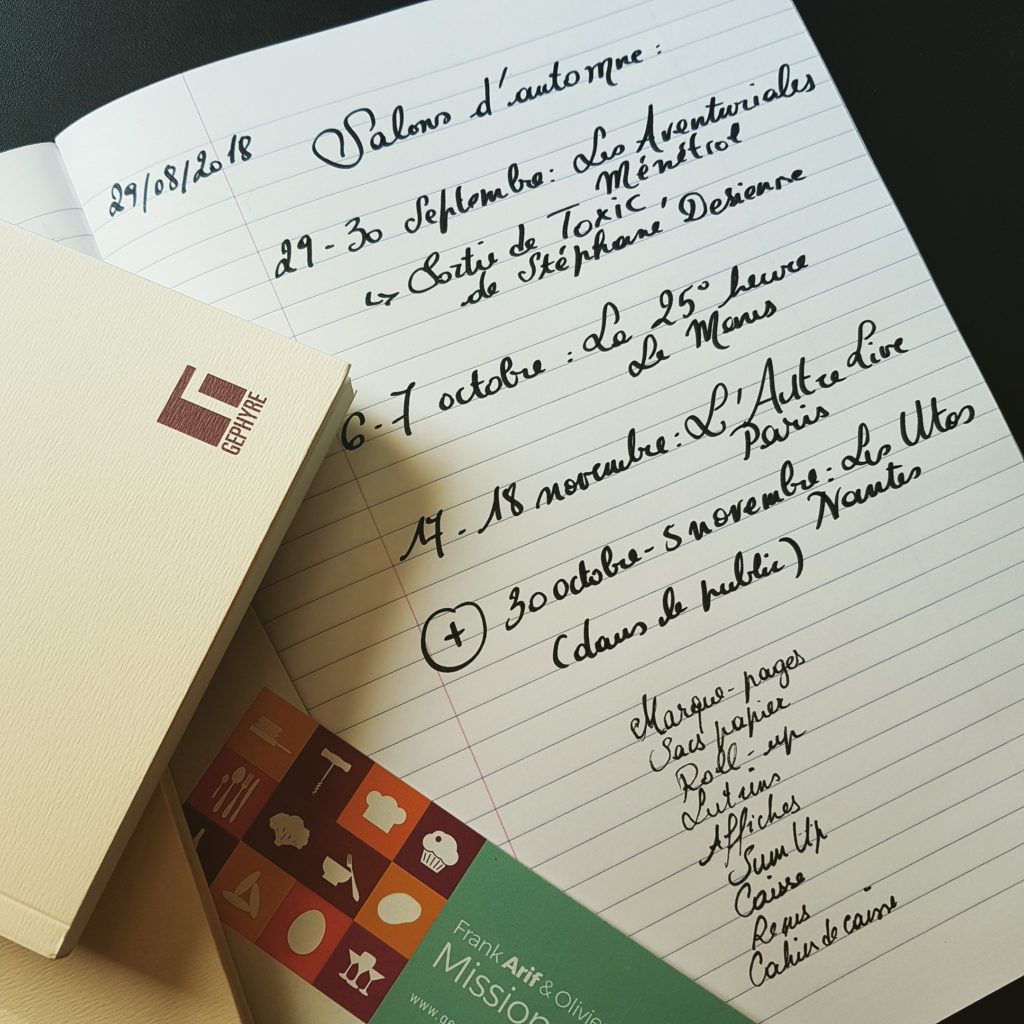 29/08/2018
Salons d'automne :
29-30 Septembre : Les Aventuriales
Ménétrol
↳ Sortie de Toxic,
de Stéphane Desienne
6-7 octobre : La 25° heure
Le Mans
17-18 novembre : L'Autre Livre
Paris
+ 30 octobre - 5 novembre : Les Utos
Nantes
(dans le public)
Marque-pages
Sacs papier
Roll-up
Lutrins
Affiches
SumUp
Caisse
Reçus
Cahier de caisse
GEPHYRE
Frank Arif & Olivie
Mission
www.ge